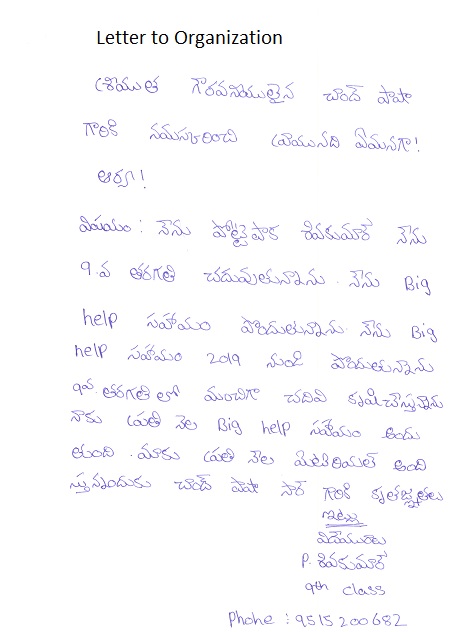 Letter to Organization
శ్రీయుత గౌరవనీయులైన చాంద్ పాషా
గారికి నమస్కరించి వ్రాయునది ఏమనగా!
ఆర్యా!
విషయం : నేను పోట్టైపాక శివకుమార్ నేను
9.వ తరగతి చదువుతున్నాను. నేను Big
help సహాయం పొందుతున్నాను. నేను Big
help సహాయం 2019 నుండి పొందుతున్నాను
9వ తరగతి లో మంచిగా చదివి కృషిచేస్తున్నాను
నాకు ప్రతి నెల Big help సహాయం అందు
తుంది. మాకు ప్రతి నెల మెటిరియల్ అంది
స్తున్నందుకు చాంద్ పాషా సార్ గారికి కృతజ్ఞతలు
ఇట్లు
విదేయురాలు
P. శివకుమార్
9th class
Phohe : 9515200682